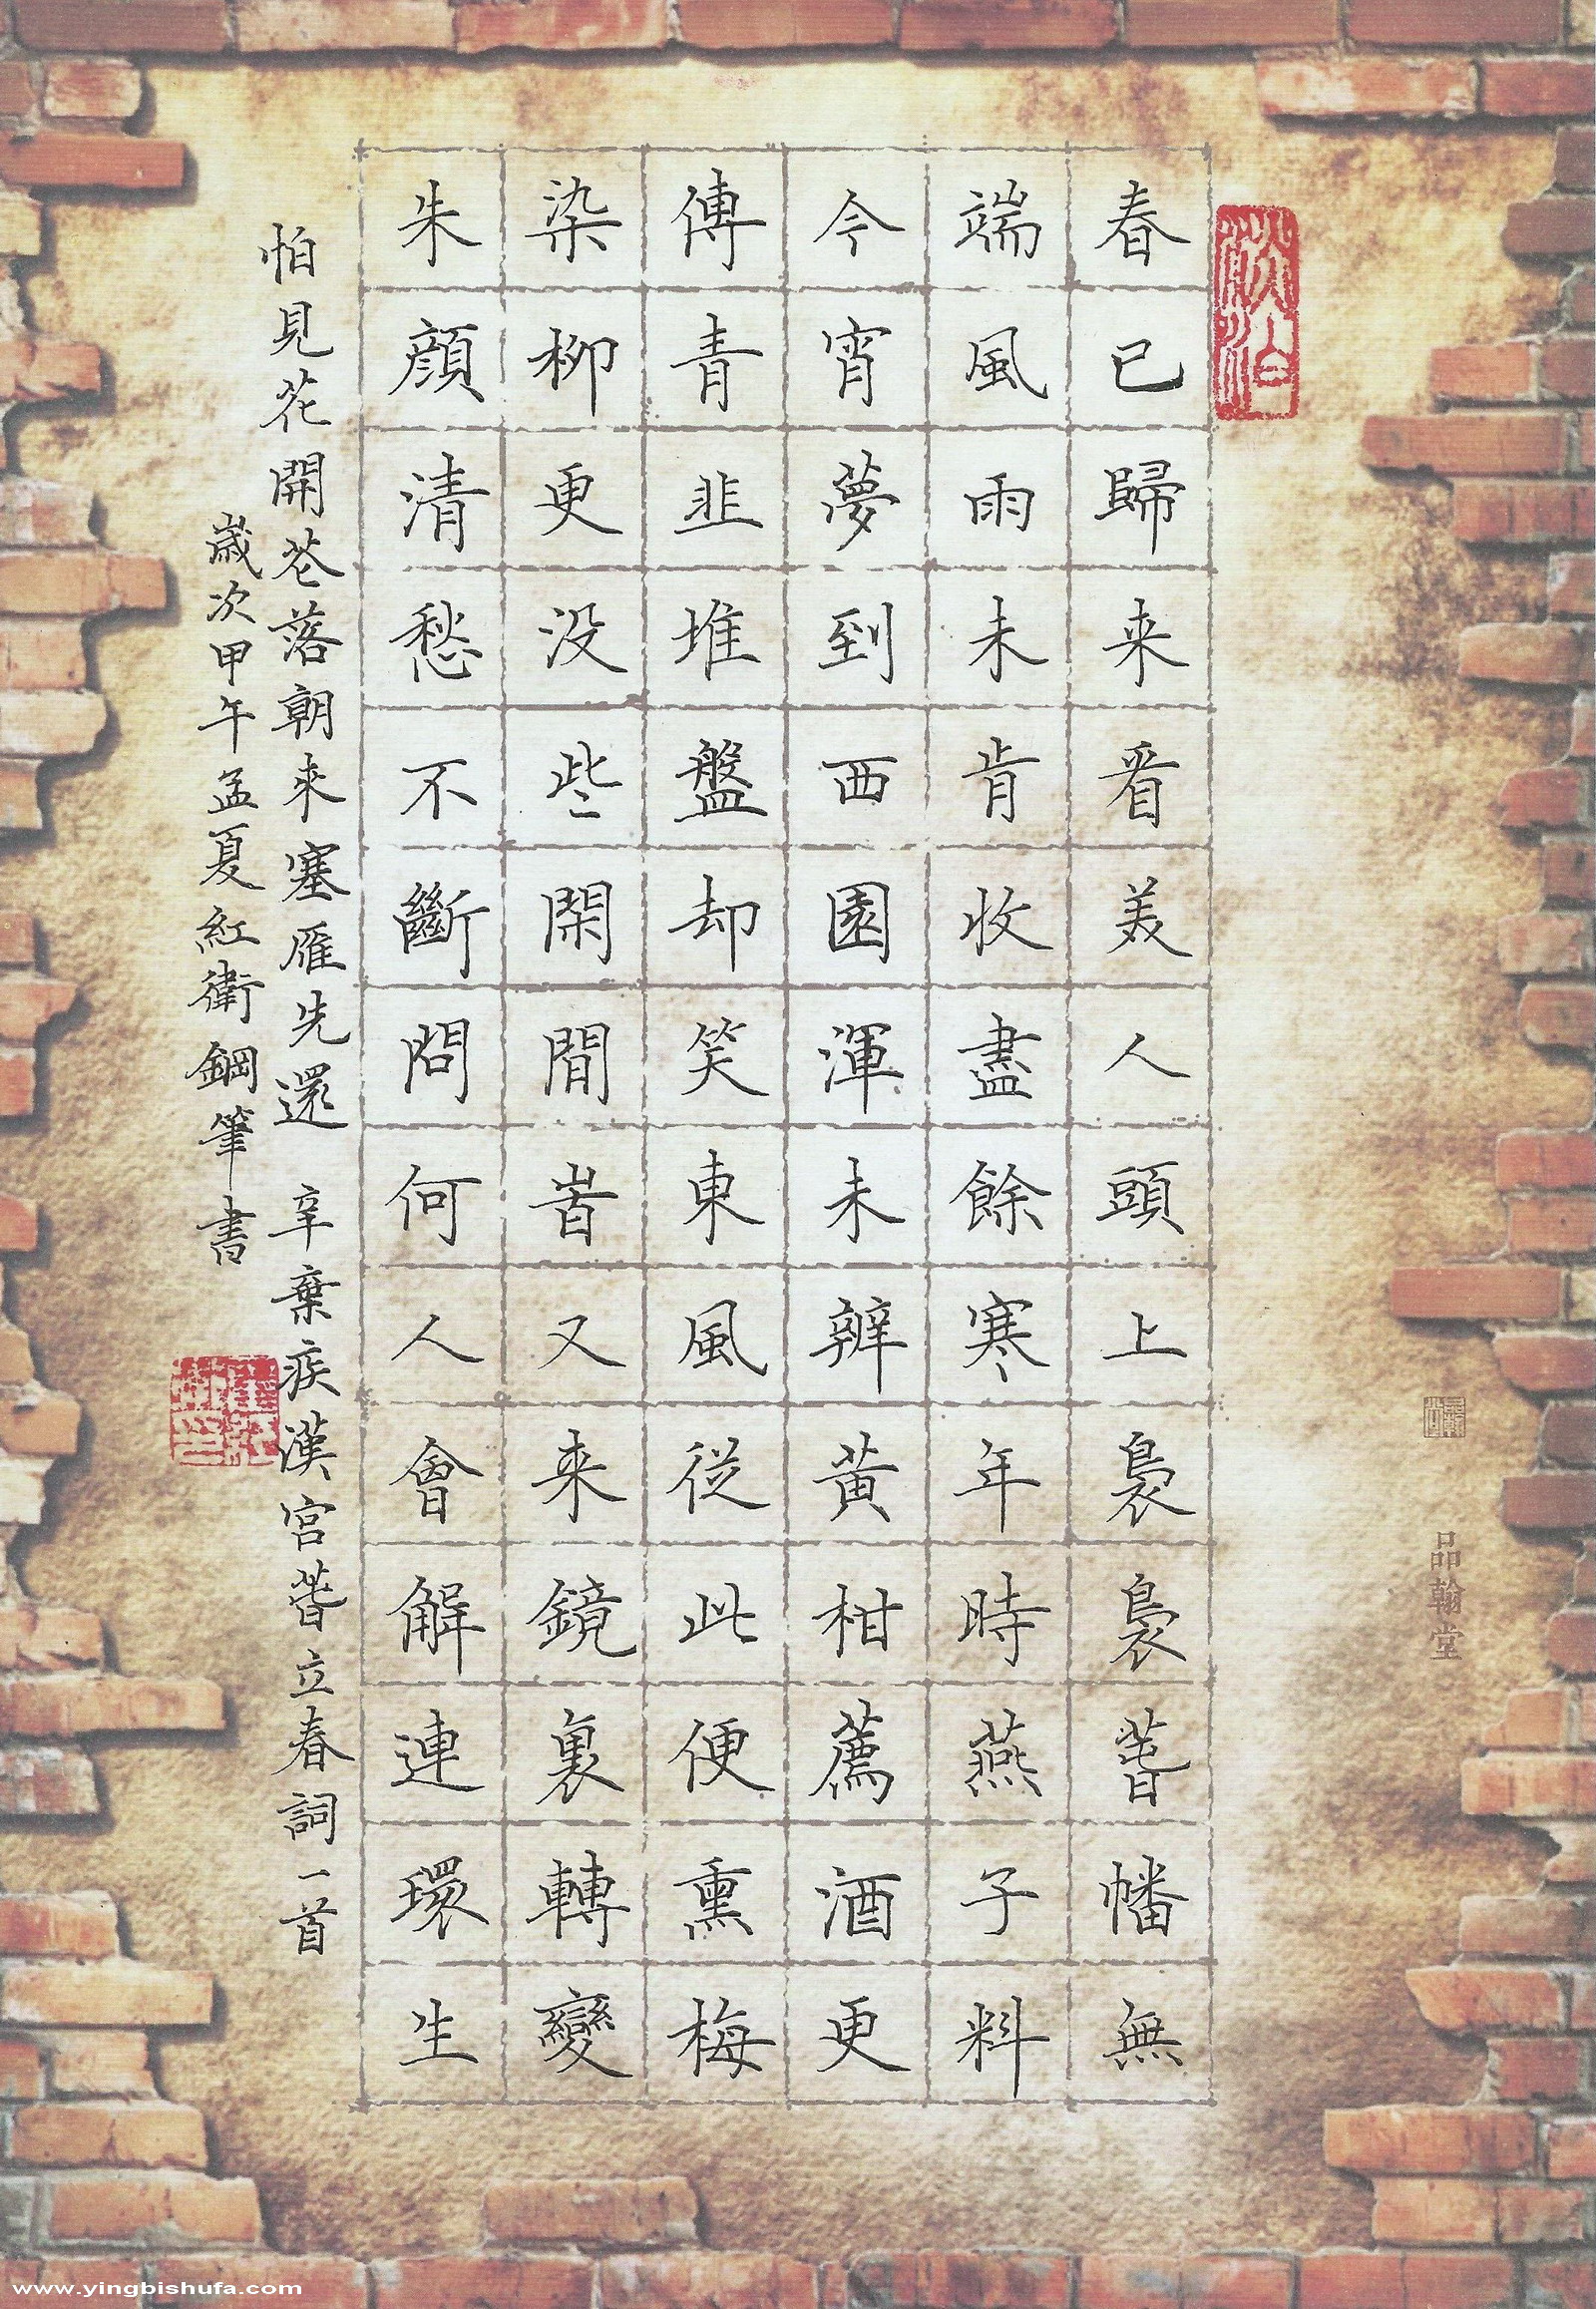 春已歸来看美人頭上裊裊萅幡無
端風雨未肯收盡餘寒年時燕子料
今宵夢到西園渾未辨黄柑薦酒更
傳青韭堆盤却笑東風從此便熏梅
染柳更没些閑閒旹又来鏡裏轉變
朱顔清愁不斷問何人會解連環生
怕見花開芲落朝來塞雁先還 辛棄疾漢宮萅立春詞一首
嵗次甲午孟夏紅衛鋼筆書
淡泊
品翰堂
www.yingbishufa.com